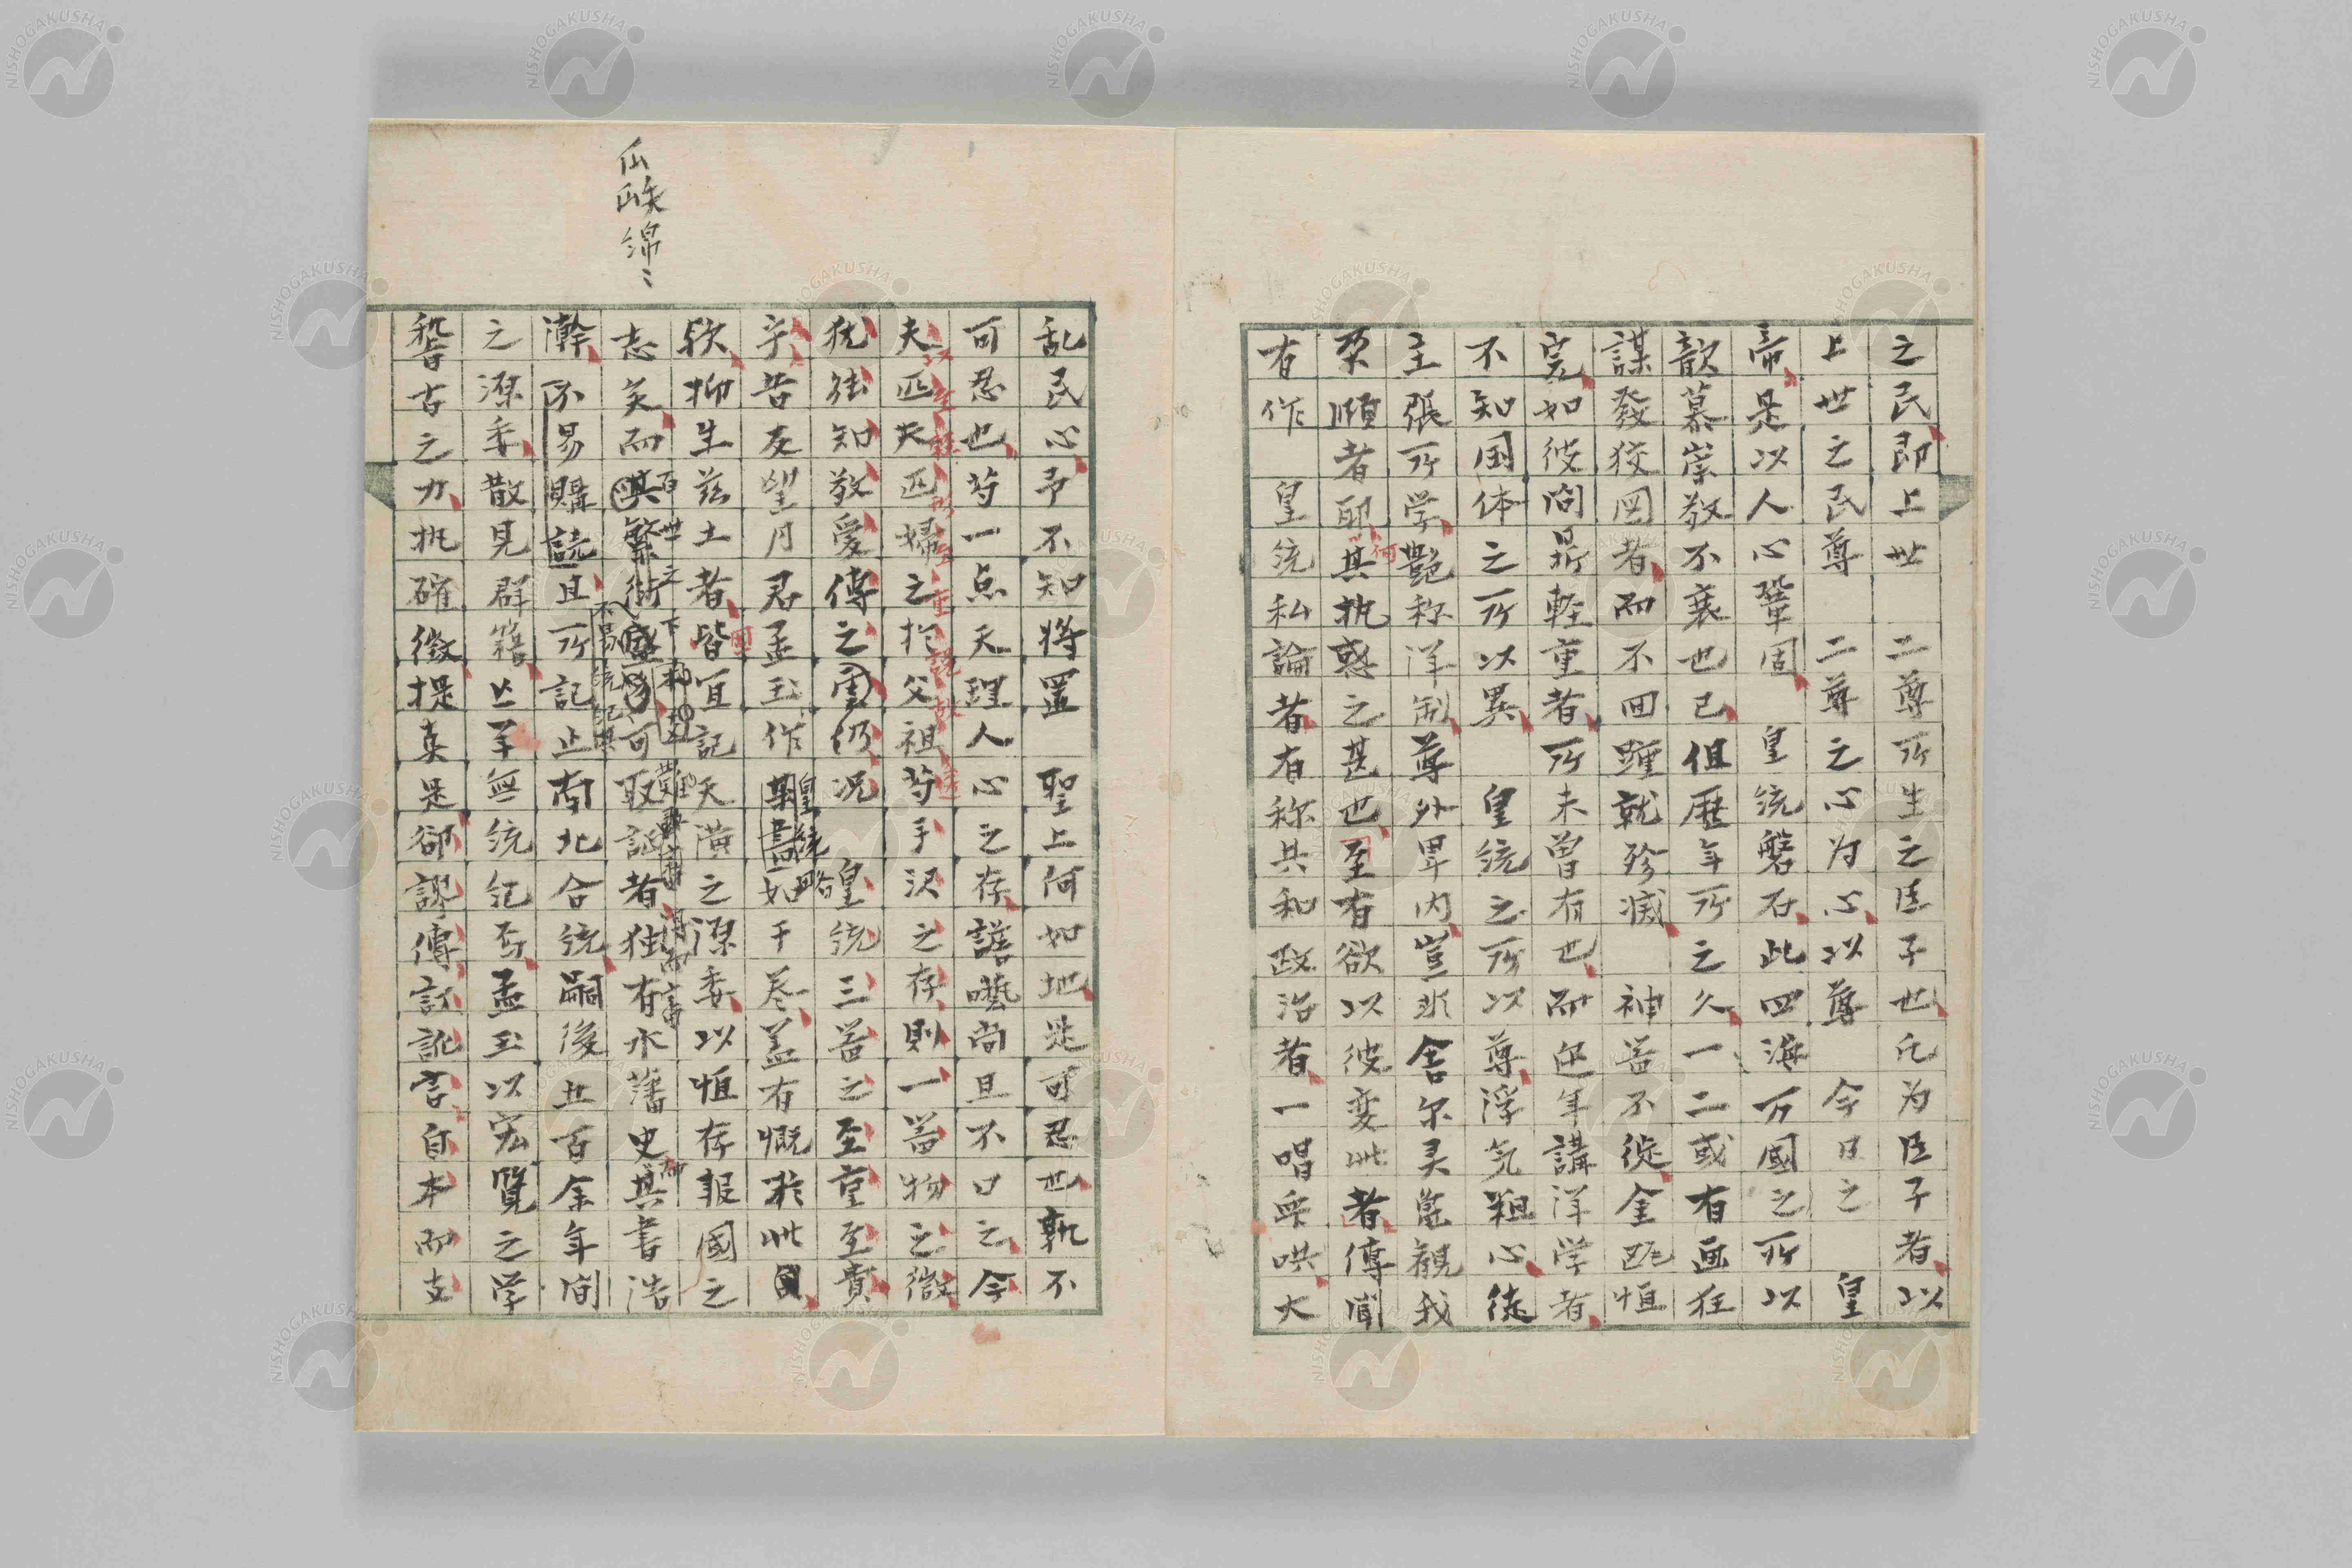 之民即上世二尊所生之臣子也凡为臣子者以
上世之民尊二尊之心为心以尊今日之皇
帝是以人心鞏固皇統磐石此四海万國之所以
歆慕崇敬不衰也已但歷年所之久一二或有画狂
謀發狡図者而不回踵就殄滅神器不徙金甌恒
完如彼问鼎軽重者所未曽有也而近年講洋学者
不知国体之所以異皇統之所以尊浮気粗心徒
主張所学艶称洋制尊外畀内豈非舍尔灵龜觀我
朶頤者耶何其执惑之甚也至有欲以彼变此者傳聞
有作皇統私論者有称共和政治者一唱衆哄大
乱民心予不知将置聖上何如地是可忍也孰不
可忍也苟一点天理人心之存譫囈尚且不口之今
夫以至輕形至重匹夫匹婦之於父祖苟手沢之存則一器物之微
犹能知敬愛傳之雲仍况皇統三器之至重至貴
乎昔友望月君孟玉作皇統略如干卷蓋有慨於此
欤抑生茲土者皆宜記天潢之源委以恒存報國之
志矣而可取証者独有水藩史其書浩
瀚不易購読且所記止南北合統嗣後五百余年间
之源委散見群籍亡羊無統紀矣孟玉以宏覽之学
稽古之力执確徵提真是卻謬傳訂訛言自本而支
瓜瓞綿〻